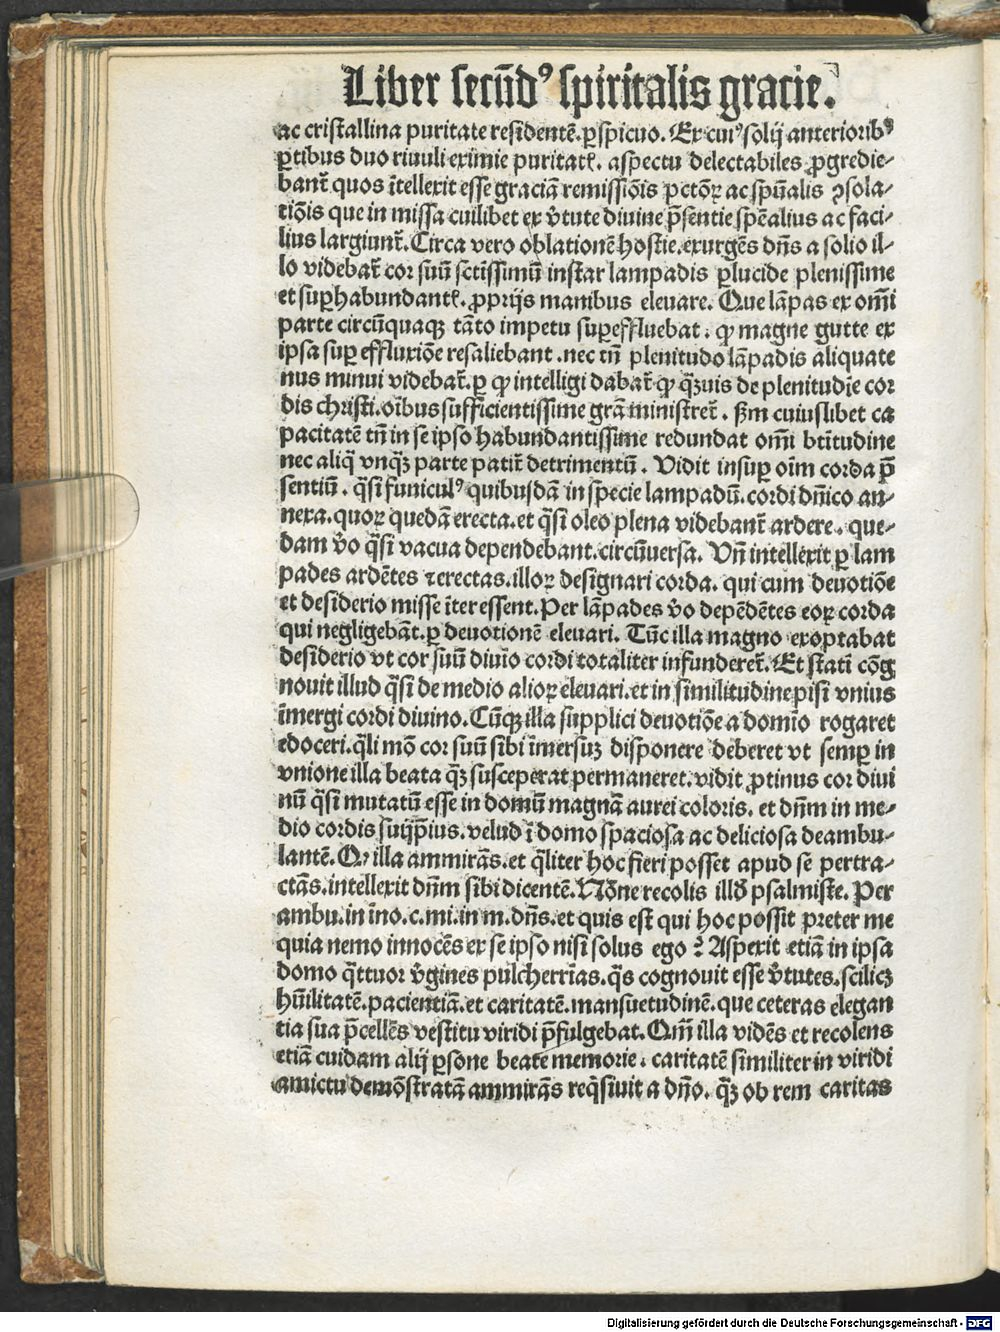 Liber secūdꝰ spiritalis gracie.
ac cristallina puritate residentē.ꝑspicuo. Ex cuiꝰ solij anterioribꝰ
ꝑtibus duo riuuli eximie puritatꝭ. aspectu delectabiles ꝓgredie-
bant̄ quos ītellexit esse graciā remissiōis pctōꝝ ac spūalis ꝯsola-
tiōis que in missa cuilibet ex v̄tute diuine p̄sentie spēalius ac faci-
lius largiunt̄. Circa vero oblationē hostie.exurgēs dn̄s a solio il-
lo videbat̄ cor suū sctīssimū instar lampadis ꝑlucide plenissime
et suꝑhabundantꝭ. ꝓprijs manibus eleuare. Que lāpas ex om̄i
parte circūquaqꝫ tāto impetu suꝑeffluebat. ꝙ magne gutte ex
ipsa suꝑ effluxiōe resaliebant .nec tn̄ plenitudo lāpadis aliquate
nus minui videbat̄. ꝑ ꝙ intelligi dabat̄ ꝙ q̄ꝫuis de plenitudīe cor
dis christi.oībus sufficientissime grā ministret̄. ẜm cuiuslibet ca
pacitatē tn̄ in se ipso habundantissime redundat om̄i btītudine
nec aliq̄ vnq̄ꝫ parte patit̄ detrimentū. Vidit insuꝑ oīm corda p̄
sentiū. q̄si funiculꝰ quibusdā in specie lampadū.cordi dn̄ico an-
nexa.quoꝝ quedā erecta.et q̄si oleo plena videbant̄ ardere. que-
dam v̄o q̄si vacua dependebant.circūuersa. Vn̄ intellexit ꝑ lam
pades ardētes ⁊ erectas.illoꝝ designari corda. qui cum deuotiōe
et desiderio misse īteressent. Per lāpades v̄o depēdētes eoꝝ corda
qui negligebāt.ꝑ deuotionē eleuari. Tūc illa magno exoptabat
desiderio vt cor suū diuīo cordi totaliter infunderet̄. Et statī cōg
nouit illud q̄si de medio alioꝝ eleuari.et in similitudine pisī vnius
īmergi cordi diuino. Cūqꝫ illa supplici deuotiōe a domīo rogaret
edoceri.q̄li mō cor suū sibi īmersuꝫ disponere deberet vt semꝑ in
vnione illa beata q̄ꝫ susceperat permaneret.vidit ꝓtinus cor diui
nū q̄si mutatū esse in domū magnā aurei coloris. et dn̄m in me-
dio cordis suijpīus.velud ī domo spaciosa ac deliciosa deambu-
lantē. Qꝫ illa ammirās.et q̄liter hoc fieri posset apud se pertra-
ctās.intellexit dn̄m sibi dicentē. Nōne recolis illđ psalmiste. Per
ambu.in īno.c.mi.in m.dn̄s.et quis est qui hoc possit preter me
quia nemo innocēs ex se ipso nisi solus ego ? Aspexit etiā in ipsa
domo q̄ttuor v̄gines pulcherrīas. q̄s cognouit esse v̄tutes.scilicꝫ
hūilitatē.pacientiā.et caritatē.mansuetudinē.que ceteras elegan
tia sua p̄cellēs vestitu viridi p̄fulgebat. Qm̄ illa vidēs et recolens
etiā cuidam alij ꝑsone beate memorie. caritatē similiter in viridi
amictu demōstratā ammirās req̄siuit a dn̄o. q̄ꝫ ob rem caritas
Digitalisierung gefördert durch die Deutsche Forschungsgemeinschaft - DFG